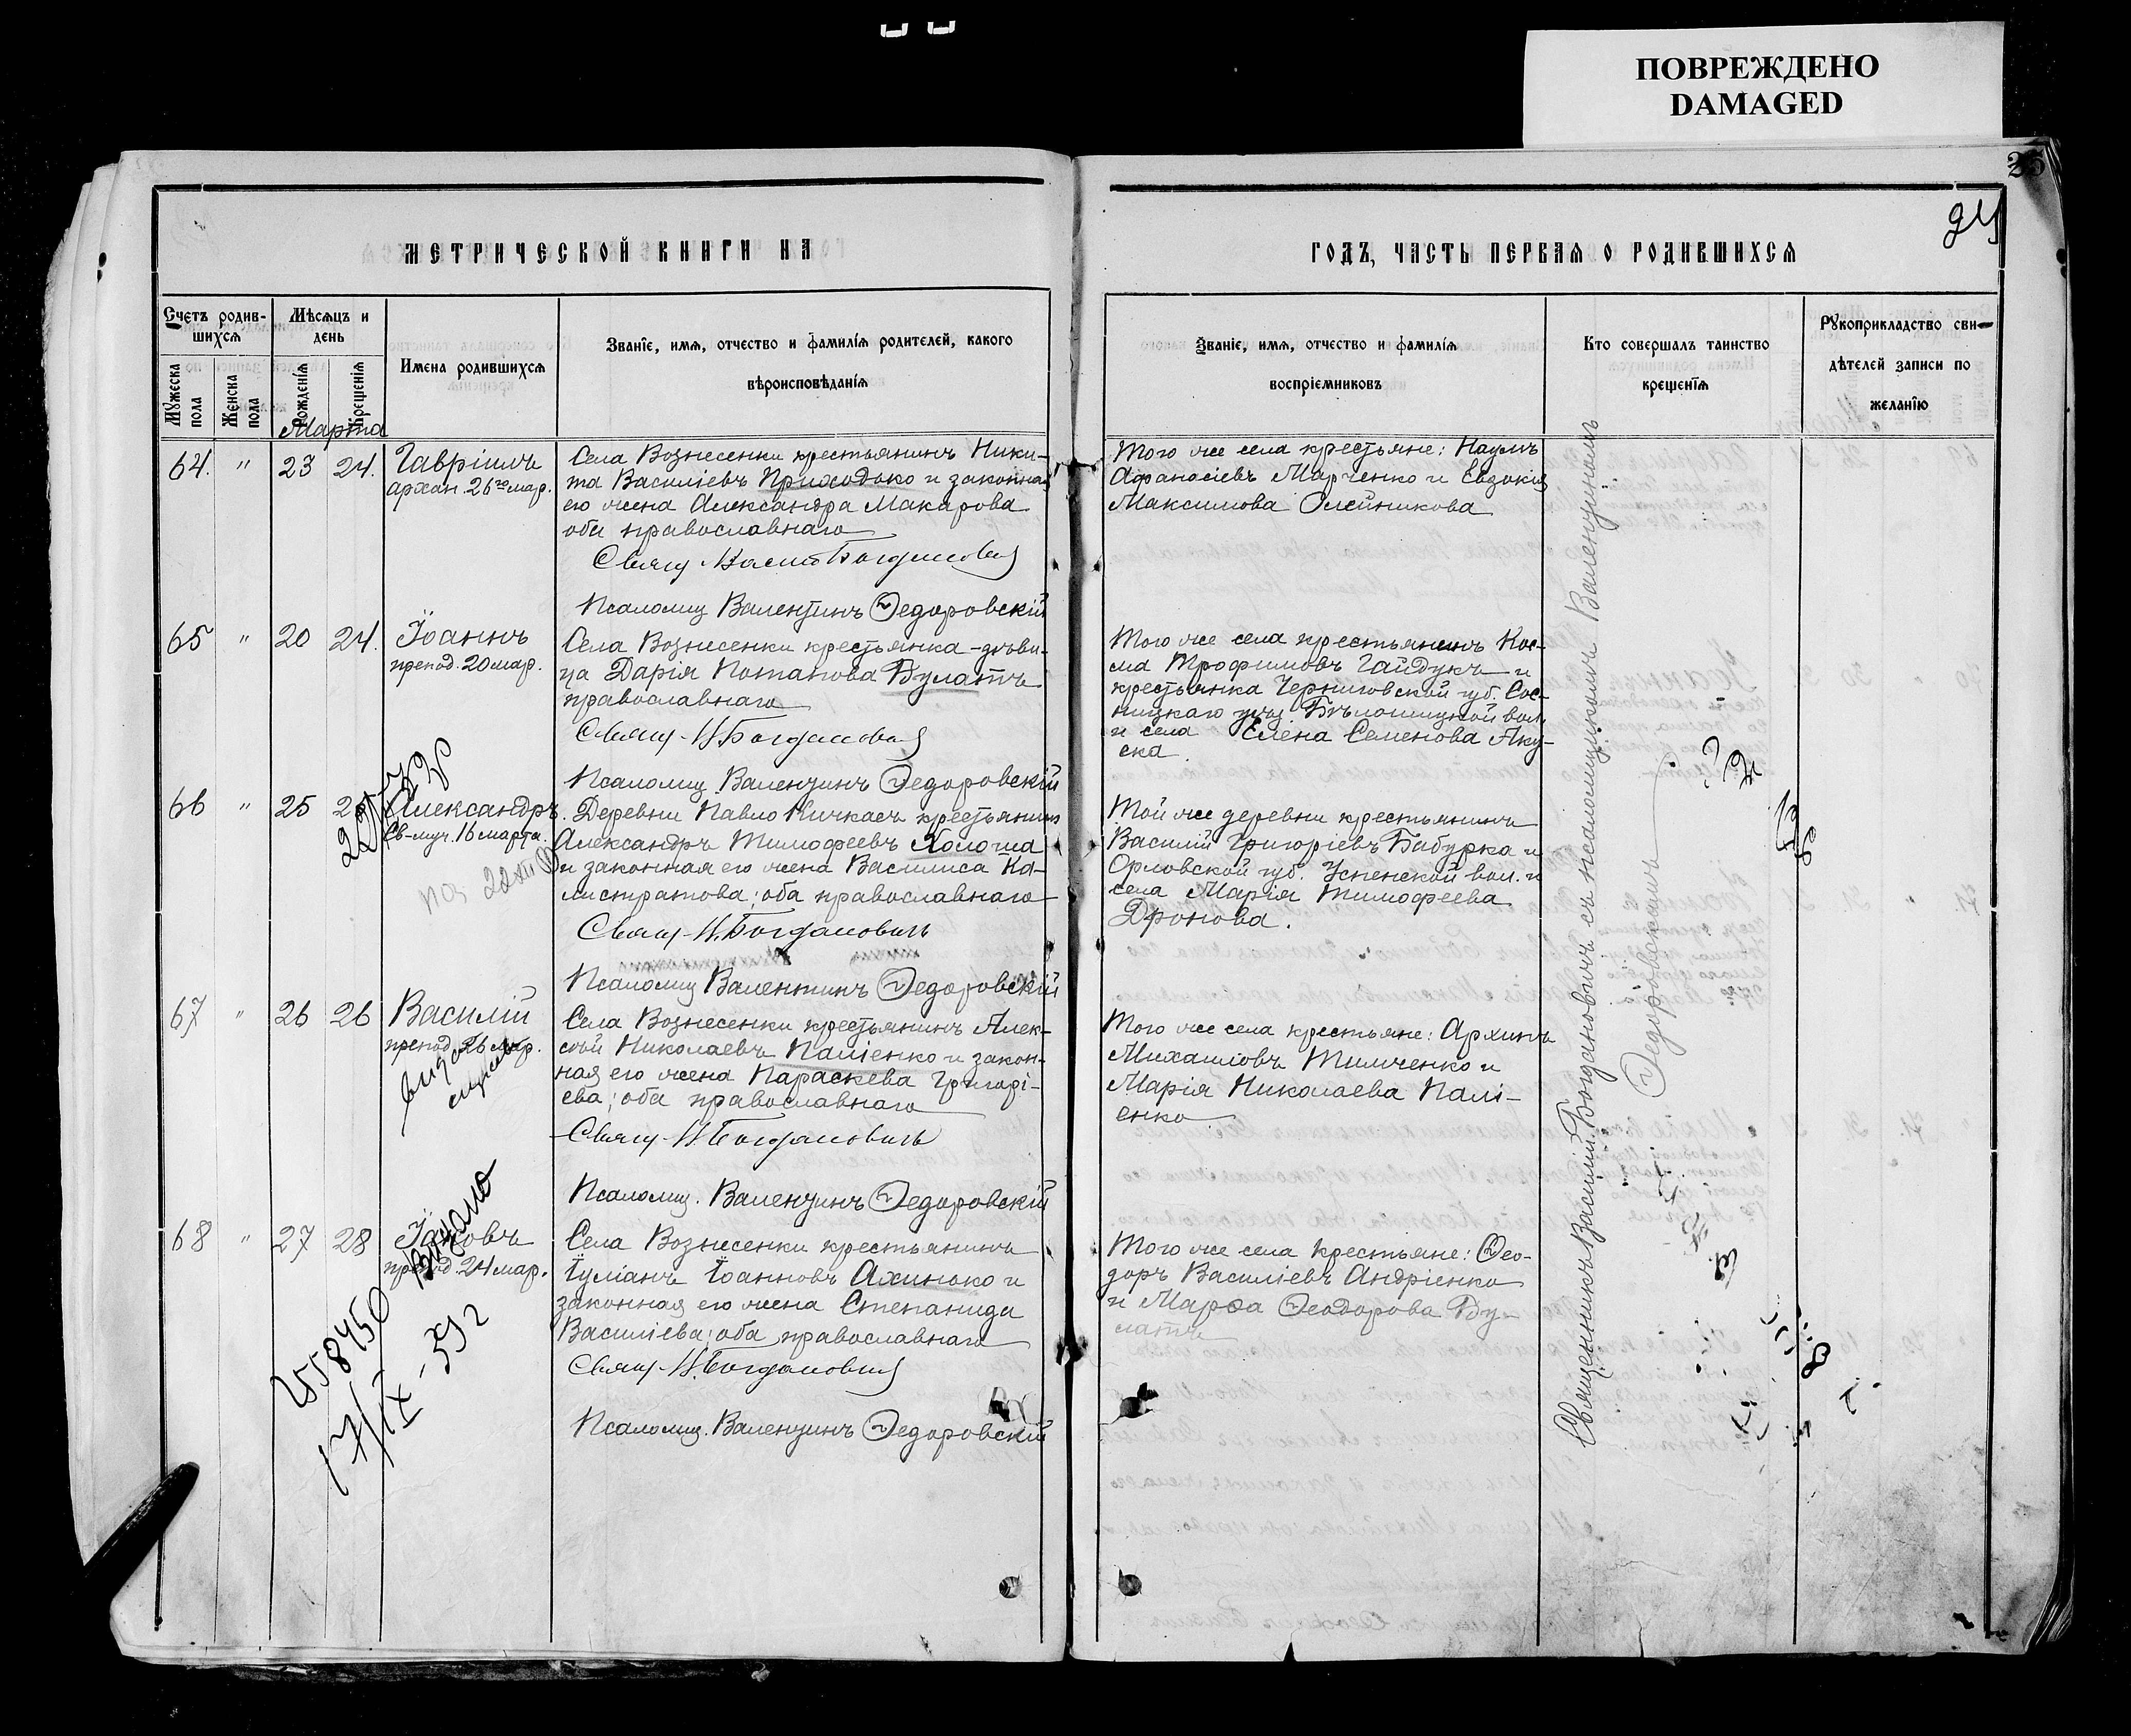 ПОВРЕЖДЕНО
DAMAGED
25
24
МЕТРИЧЕСКОЙ КНИГИ НА
ГОДЪ, ЧАСТЬ ПЕРВАЯ О РОДИВШИХСЯ
Счетъ родив-
шихся
Мѣсяцъ и
день
Мужеска пола
Женска пола
Рожденія
Крещенія
Имена родившихся
Званіе, имя, отчество и фамилія родителей, какого
вѣроисповѣданія
Званіе, имя, отчество и фамилія
воспріемниковъ
Кто совершалъ таинство
крещенія
Рукоприкладство сви-
дѣтелей записи по
желанію
Марта
64. " 23 24. Гавріилъ
архан. 26го мар.
Села Вознесенки крестьянинъ Ники-
та Василіевъ Приходько и законная
его жена Александра Макарова
оба православнаго
Свящ. Васил. Богдановичъ
Псаломщ. Валентинъ Ѳедоровскій
Того же села крестьяне: Наумъ
Афанасіевъ Марченко и Евдокія
Максимова Олейникова
65 " 20 24. Іоаннъ
препод. 20 мар.
Села Вознесенки крестьянка-дѣви-
ца Дарія Потапова Булатъ
православнаго
Свящ. В. Богдановичъ
Псаломщ. Валентинъ Ѳедоровскій
Того же села крестьянинъ Кос-
ма Трофимовъ Гайдукъ и
крестьянка Черниговской губ. Сос-
ницкаго уѣз. Бѣлошицкой вол.
и села Елена Семенова Яку-
ска
66 " 25 Александръ
Св-муч. 16 марта.
Деревни Павло Кичкасъ крестьянинъ
Александръ Тимофеевъ Холоша
и законная его жена Василиса Ка-
листратова; оба православнаго
Свящ. В. Богдановичъ
Псаломщ Валентинъ Ѳедоровскій
Той же деревни крестьянинъ
Василій Григоріевъ Бабурка и
Орловской губ. Успенской вол. и
села Марія Тимофеева
Дронова.
67 " 26 26 Василій
препод. 26 мар.
Села Вознесенки крестьянинъ Алек-
сѣй Николаевъ Паліенко и закон-
ная его жена Параскева Григорі-
ева; оба православнаго
Свящ. В. Богдановичъ
Псаломщ. Валентинъ Ѳедоровскій
Того же села крестьяне: Архипъ
Михаиловъ Тимченко и
Марія Николаева Палі-
енко
68 " 27 28 Іаковъ
препод. 24 мар.
Села Вознесенки крестьянинъ
Іуліанъ Іоанновъ Ахинько и
законная его жена Степанида
Василіева; оба православнаго
Свящ. В. Богдановичъ
Псаломщ. Валентинъ Ѳедоровскій
Того же села крестьяне: Ѳео-
доръ Василіевъ Андріенко
и Марѳа Ѳеодорова Бу-
латъ
Священникъ Василій Богдановичъ съ псаломщикомъ Валентиномъ
Ѳедоровскимъ